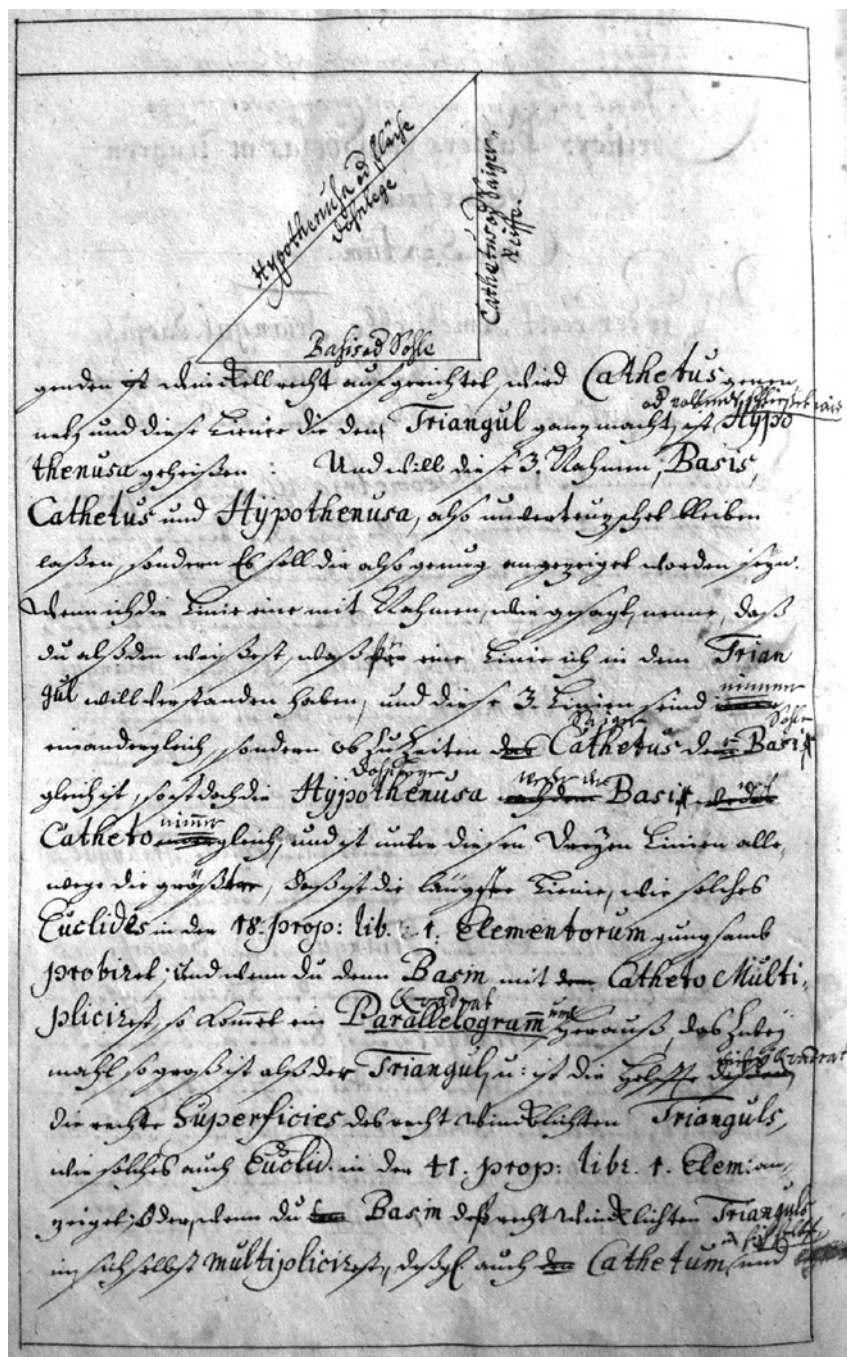 Hypothenusa od flache
Dohnlege
Cathetus od Saiger
Teüffe.
Basis od Sohle
genden ist winckellrecht aufgerichtet, wird Cathetus genen
net, und diese Linie die den Triangul gantz macht, ist Hÿpo
thenusa geheißen: Und will diese 3. Nahmen, Basis,
Cathetus und Hÿpothenusa, also unverteutzschet bleiben
laßen, sondern Es soll dir also genug angezeiget worden seyn.
Wenn ich die Linie eine mit Nahmen, wie gesagt, nenne, daß
du alßden weißest, waß für eine Linie ich in dem Trian
gul will verstanden haben, und diese 3. Linien seind
nimmer
einander gleich, sondern ob zu Zeiten das Cathetus dem Basi
Saiger
Sohle
gleich ist, so ist doch die Hÿpothenusa Basi
weder der
Catheto gleich, und ist unter diesen Dreyen Linien alle,
nimmer
wege die größte, daß ist die längste Linie, wie solches
Euclides in der 18. prop: lib. 1. Elementorum gungsamb
probiret; und wenn du denn Basin mit dem Catheto Multi,
plicirest, so kommet ein Parallelogramm herauß, das zwey
Quadrat
mahl so groß ist alß der Triangul, u: ist die Helffte
Quadrat
die rechte Superficies des recht wincklichten Trianguls,
wie solches auch Euclid. in der 41. prop: libr. 1. Elem: an,
zeiget; Oder, wenn du Basin deß recht wincklichten Trianguls
in sich selbst multiplicirest, deßgl. auch den Cathetum, und
in sich selbst